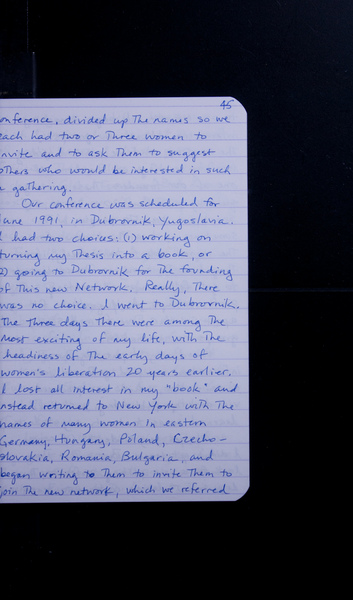 45
onference, divided up The names so we
each had two or Three women to
invite and to ask Them to suggest
others who would be interested in such
a gathering.
Our conference was scheduled for
June 1991, in Dubrovnik, Yugoslavia.
I had two choices: (1) working on
turning my Thesis into a book, or
2) going to Dubrovnik for The founding
of This new Network. Really, There
was no choice. I went to Dubrovnik.
The Three days There were among The
most exciting of my life, with The
headiness of The early days of
women's liberation 20 years earlier.
I lost all interest in my "book" and
nstead returned to New York with The
names of many women in eastern
Germany, Hungary, Poland, Czecho-
slovakia, Romania, Bulgaria, and
began writing to Them to invite Them to
join The new network, which we referred